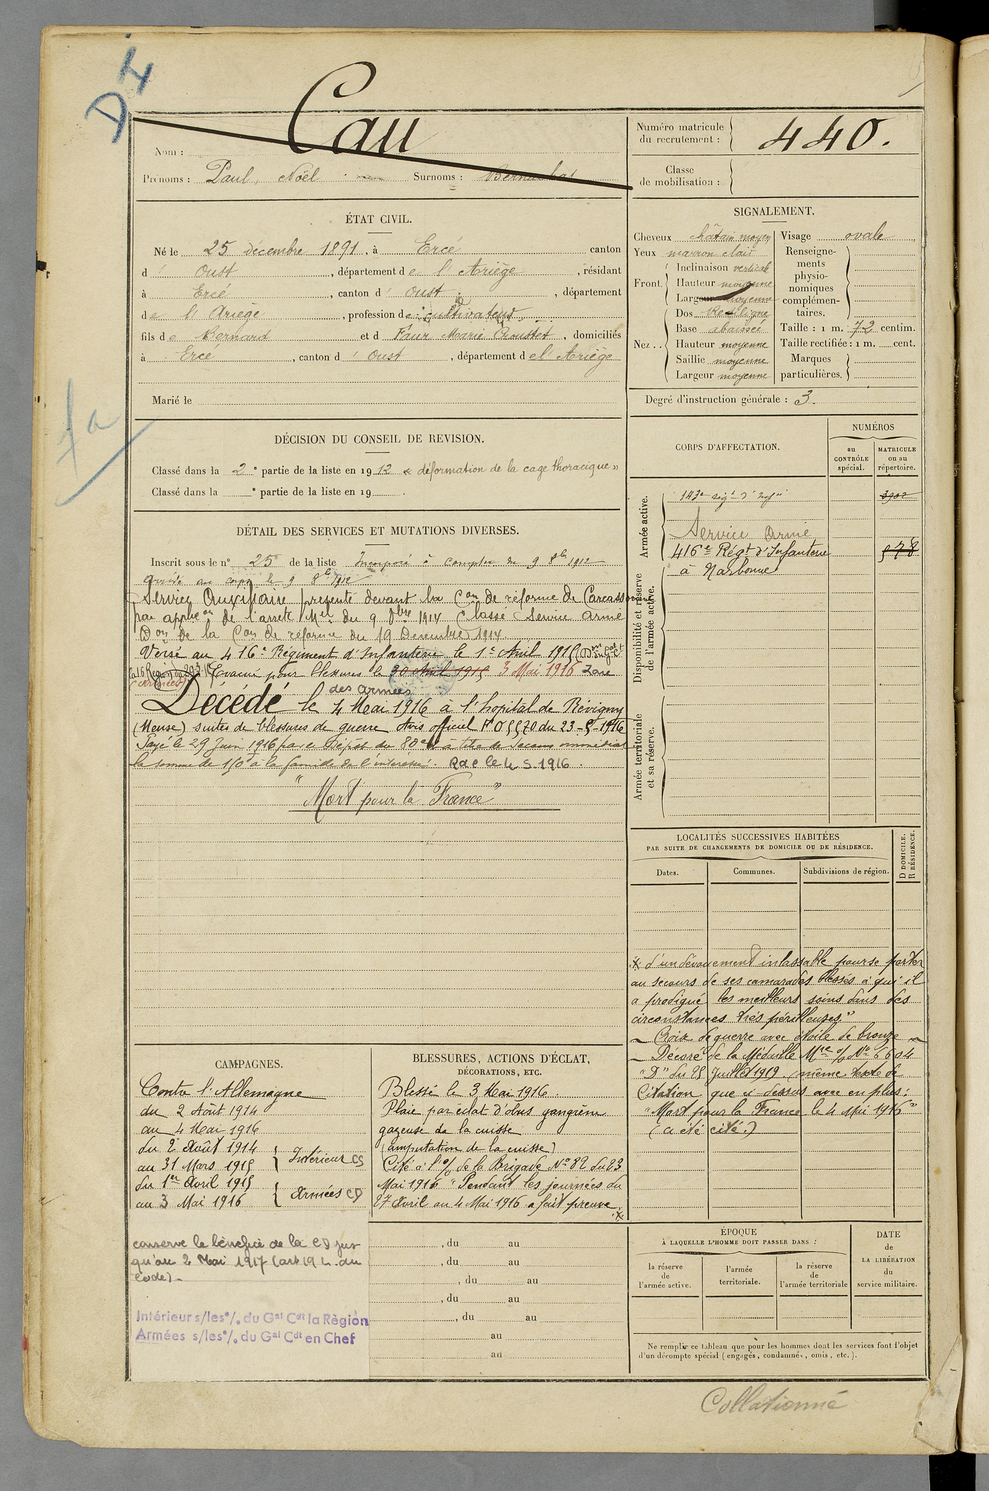 D4
Nom : Cau
Prénoms : Paul, Noël Surnoms :
Numéro matricule du recrutement : 440.
Classe de mobilisation :
ÉTAT CIVIL.
Né le 25 décembre 1891, à Ercé canton
d' Oust, département de l'Ariège, résidant
à Ercé, canton d' Oust, département
de l'Ariège, profession de cultivateur
fils de Bernard et d Faur Marie, domiciliés
à Ercé, canton d' Oust, département de l'Ariège
Marié le
SIGNALEMENT.
Cheveux châtain moyen
Yeux marron clair
Front. Inclinaison vertical
Hauteur moyenne
Largeur moyenne
Nez.. Dos rectiligne
Base abaissée
Hauteur moyenne
Saillie moyenne
Largeur moyenne
Visage ovale
Renseignements physionomiques complémentaires.
Taille : 1 m. 72 centim.
Taille rectifiée : 1 m. cent.
Marques particulières.
Degré d'instruction générale : 3.
DÉCISION DU CONSEIL DE REVISION.
Classé dans la 2e partie de la liste en 1912 « déformation de la cage thoracique »
Classé dans la e partie de la liste en 19 .
CORPS D'AFFECTATION.
NUMÉROS
au CONTRÔLE spécial.
MATRICULE ou au répertoire.
Armée active.
143e régt d'Infie
Service Armé
416e Régt d'Infanterie
à Narbonne
Disponibilité et réserve de l'armée active.
Armée territoriale et sa réserve.
DÉTAIL DES SERVICES ET MUTATIONS DIVERSES.
Inscrit sous le n° 25 de la liste Incorporé à compter du 9 8bre 1912
arrivé au corps le 9 8bre 1912
Service Auxiliaire présenté devant la Con de réforme de Carcassonne
par appl.on de l'arrêté Mel du 9 9bre 1914 Classé Service Armé
Don de la Con de réforme du 19 Décembre 1914.
Versé au 416e Régiment d'Infanterie le 1er Avril 1915
Evacué pour blessures le 30 Avril 1915 3 Mai 1916 Zone
des armées
Décédé le 4 Mai 1916 à l'hôpital de Revigny
(Meuse) suites de blessures de guerre Avis officiel du 23-5-1916
Payé le 29 Juin 1916 par le Dépôt du 80e à titre de secours
la somme de 150f à la famille de l'intéressé. Raé le 4.5.1916.
"Mort pour la France"
LOCALITÉS SUCCESSIVES HABITÉES
PAR SUITE DE CHANGEMENTS DE DOMICILE OU DE RÉSIDENCE.
Dates.
Communes.
Subdivisions de région.
D DOMICILE. R RÉSIDENCE.
* d'un dévouement inlassable pour se porter
au secours de ses camarades blessés à qui il
a prodigué les meilleurs soins dans des
circonstances très périlleuses"
Croix de guerre avec étoile de bronze
Décoré de la Médaille Mre o/ No 6604
"D" du 25 Juillet 1919. (même texte de
Citation que ci-dessus avec en plus :
"Mort pour la France le 4 Mai 1916"
(a été cité.)
CAMPAGNES.
Contre l'Allemagne
du 2 Août 1914
au 4 Mai 1916
du 2 Août 1914
au 31 Mars 1915 Intérieur CS
du 1er Avril 1915
au 3 Mai 1916 Armées CD
conserve le bénéfice de la CD jus
qu'au 2 Mai 1917 (art 19 L. du
Code).
Intérieur s/les °/. du Gal Cdt la Région
Armées s/les °/. du Gal Cdt en Chef
BLESSURES, ACTIONS D'ÉCLAT,
DÉCORATIONS, ETC.
Blessé le 3 Mai 1916.
Plaie par éclat d'obus gangrène
gazeuse de la cuisse
(amputation de la cuisse)
Cité à l'o/ de la Brigade No 82 du 23
Mai 1916 "Pendant les journées du
27 Avril au 4 Mai 1916 a fait preuve *
, du au
, du au
, du au
, du au
, du au
au
au
ÉPOQUE
À LAQUELLE L'HOMME DOIT PASSER DANS :
la réserve de l'armée active.
l'armée territoriale.
la réserve de l'armée territoriale
DATE de LA LIBÉRATION du service militaire.
Ne remplir ce tableau que pour les hommes dont les services font l'objet
d'un décompte spécial (engagés, condamnés, omis, etc.).
Collationné